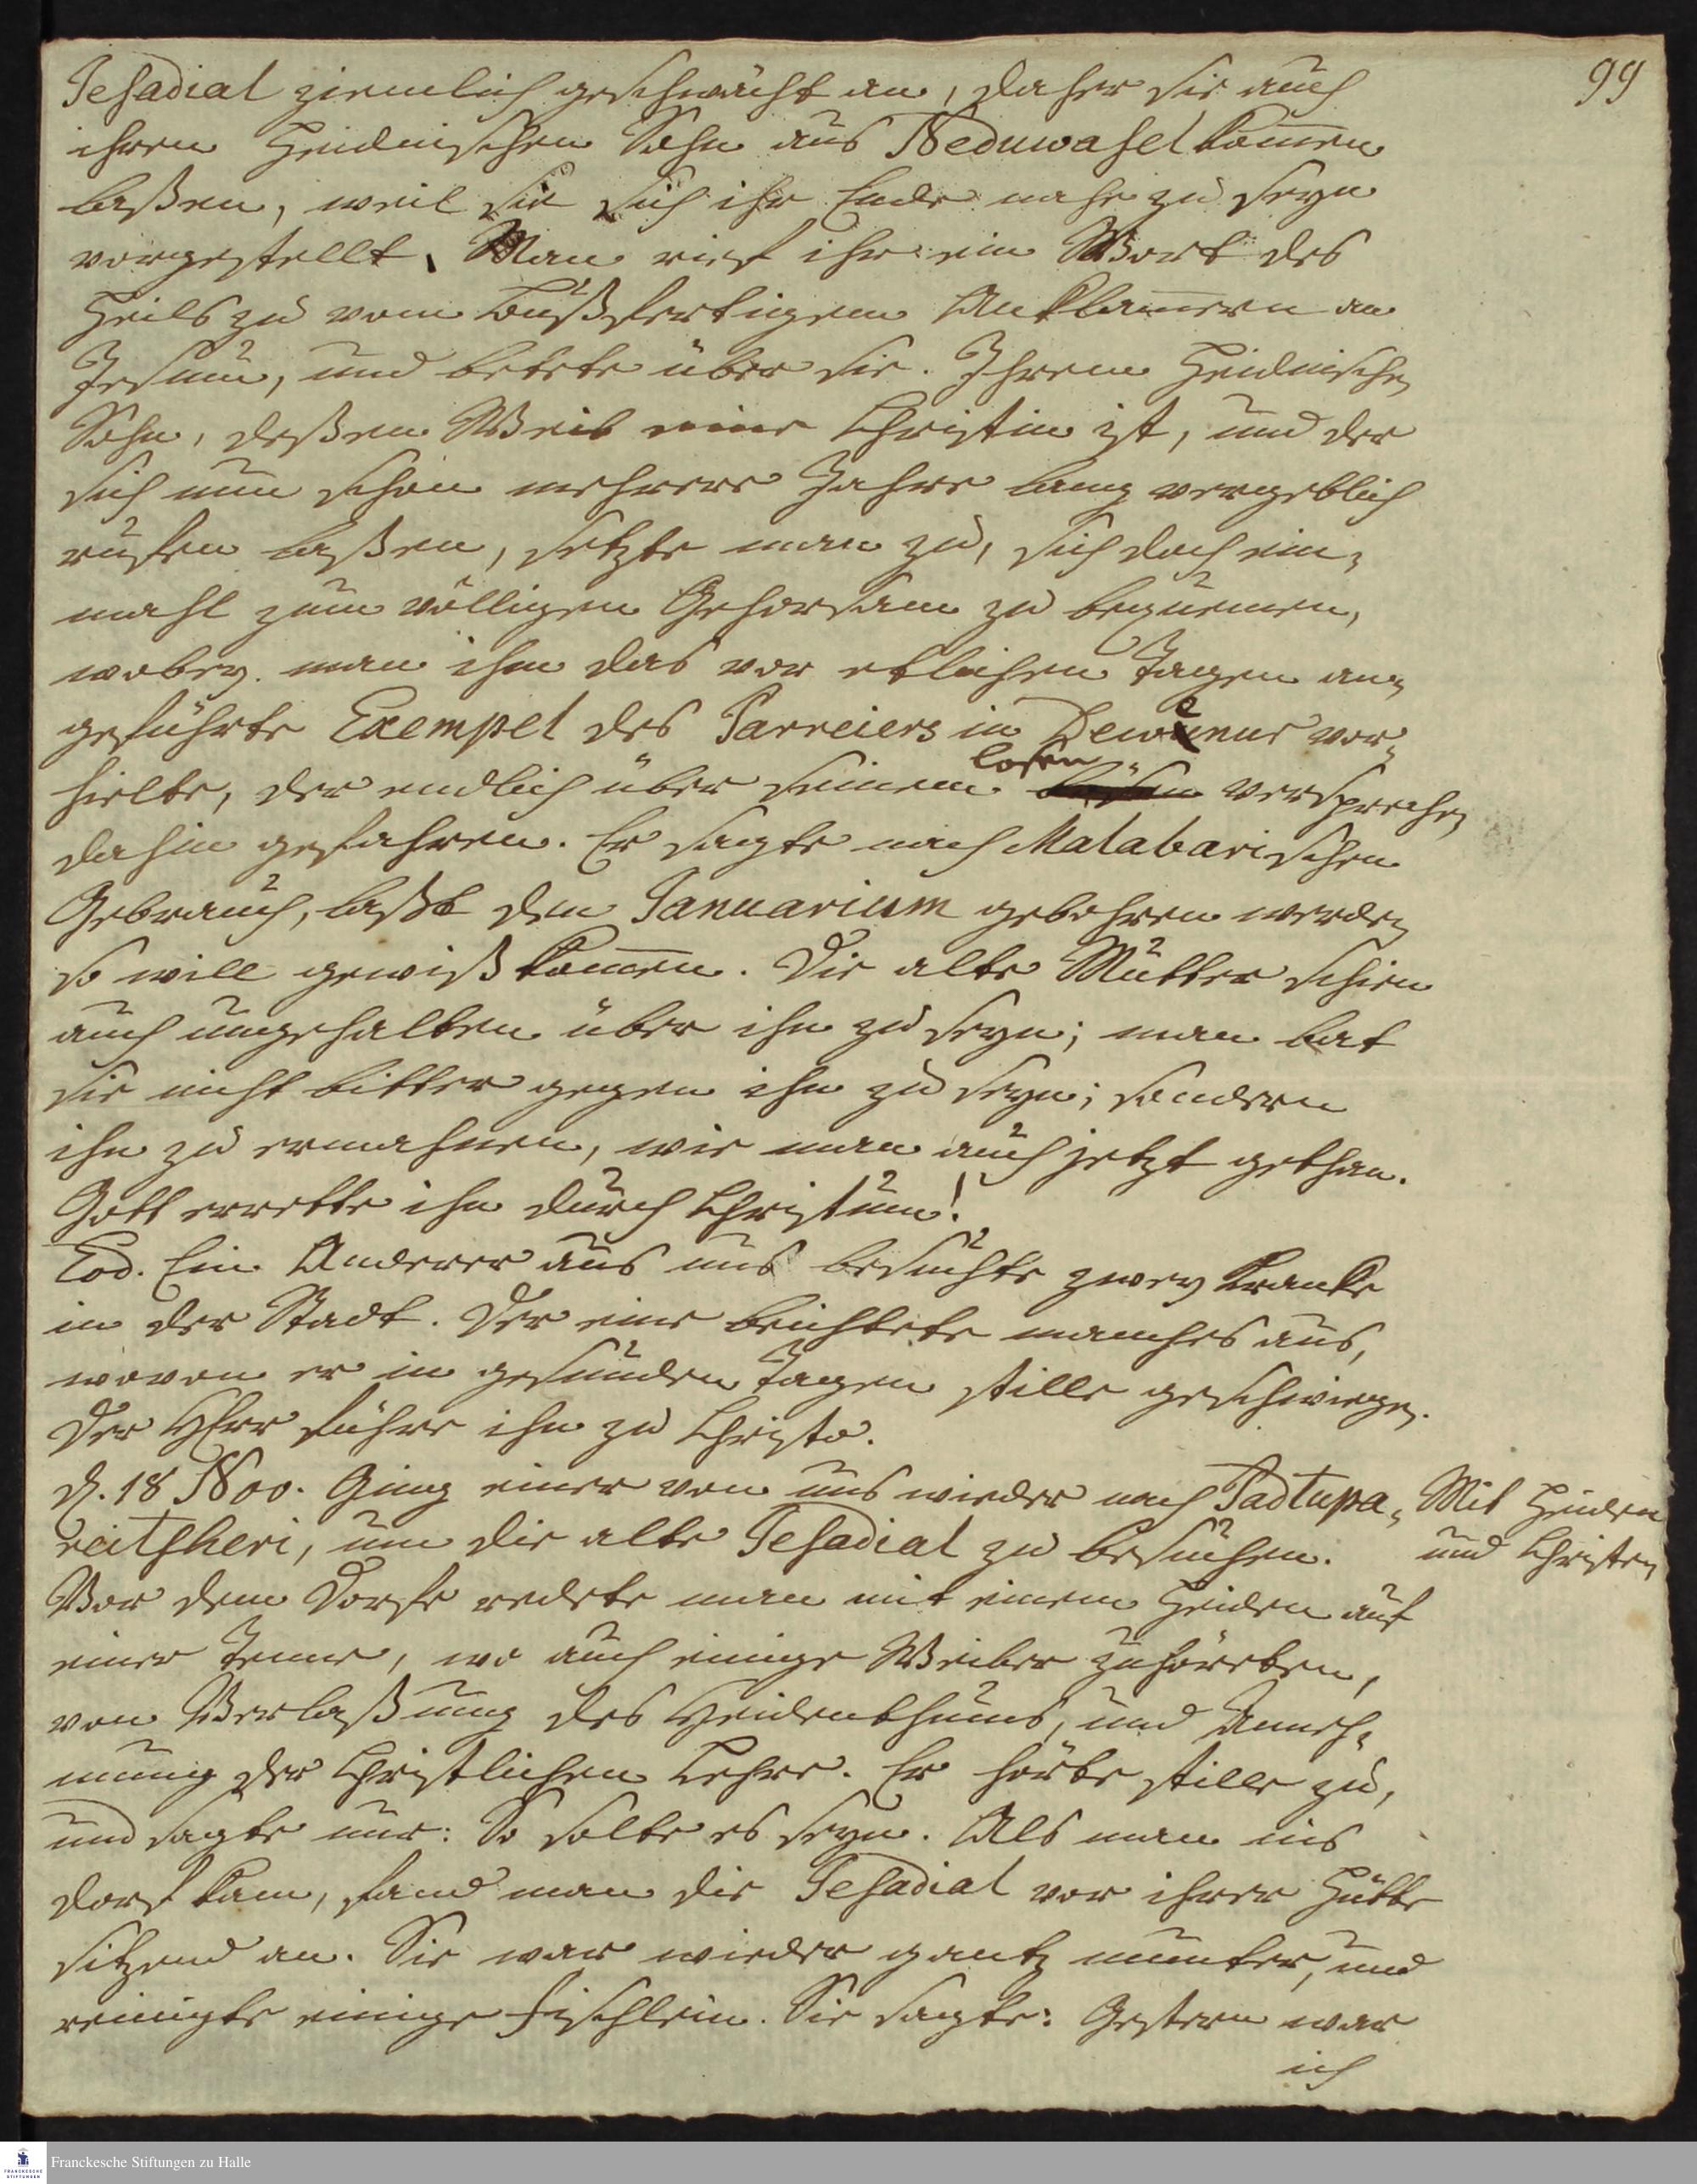 99
Jesadial ziemlich geschwächt an, daher sie auch
ihren Heidnischen Sohn aus Neduwasel kom̅en
laßen, weil sie sich ihr Ende nahe zu seyn
vorgestellt. Man rief ihr ein Wort des
Heils zu vom bußfertigen Anklam̅ern an
Jesum, und betete über sie. Ihrem Heidnischen
Sohn, deßen Weib eine Christin ist, und der
sich nun schon mehrere Jahre lang vergeblich
rufen laßen, setzte man zu, sich doch ein-
mahl zum völligen Gehorsam zu bequemen,
wobey man ihm das vor etlichen Tagen an-
geführte Exempel des Parreiers in vor-
hielte, der endlich über seinem losen Versprechen
dahin gefahren. Er sagte nach Malabarischen
Gebrauch, laßt den Januarium gebohren werden
so will gewiß kom̅en. Die alte Mutter schien
auch ungehalten über ihn zu seyn; man bat
sie nicht bitter gegen ihn zu seyn; sondern
ihn zu ermahnen, wie man auch jetzt gethan.
Gott errette ihn durch Christum!
Eod. Ein Anderer aus uns besuchte zwey Kranke
in der Stadt. Der eine beichtete manches aus,
wovon er in gesunden Tagen stille geschwiegen.
Der HErr führe ihn zu Christo.
d. 18 Nov. Ging einer von uns wieder nach Padtupa-
reitsheri, um die alte Jesadial zu besuchen.
Mit Heiden
und Christen
Vor dem Dorfe redete man mit einem Heiden auf
einer Tenne, wo auch einige Weiber zuhöreten,
von Verlaßung des Heidenthums, und Anneh-
mung der Christlichen Lehre. Er hörte stille zu,
und sagte nur: So solte es seyn. Als man ins
Dorf kam, fand man die Jesadial vor ihrer Hütte
sitzend an. Sie war wieder gantz munter, und
reinigte einige Fischlein. Sie sagte: Gestern war
ich
Franckesche Stiftungen zu Halle
FRANCKESCHE
STIFTUNGEN